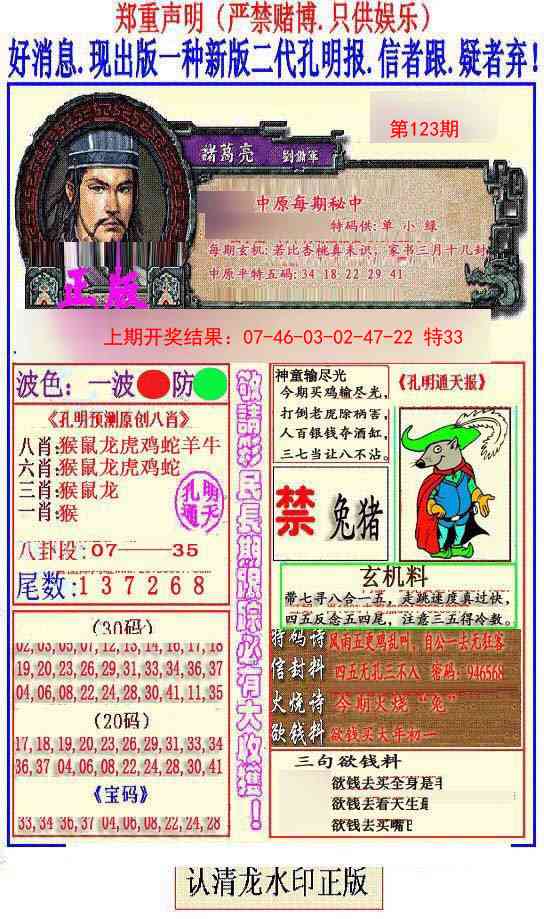 郑重声明（严禁赌博.只供娱乐）
好消息.现出版一种新版二代孔明报.信者跟.疑者弃！
第123期
諸葛亮 劉備軍
中原每期秘中
特码供:单 小 绿
每期玄机:若比杏桃真未识，家书三月十几封
中原平特五码:34 18 22 29 41
正版
上期开奖结果：07-46-03-02-47-22 特33
波色：一波 防
《孔明预测原创八肖》
八肖:猴鼠龙虎鸡蛇羊牛
六肖:猴鼠龙虎鸡蛇
三肖:猴鼠龙
一肖:猴
孔明
通天
八卦段:07——35
尾数:137268
(30码)
02,03,05,07,12,13,14,16,17,18
19,20,23,26,29,31,33,34,36,37
04,06,08,22,24,28,30,41,11,35
(20码)
17,18,19,20,23,26,29,31,33,34
36,37 04,06,08,22,24,28,30,41
《宝码》
33,34 36,37 04,06,08,22,24,28
敬請彩民長期跟踪必有大收獲！
神童输尽光
今期买鸡输尽光，
打倒老虎除祸害，
人百银钱夺酒缸，
三七当让八不沾。
《孔明通天报》
禁 兔猪
玄机料
带七寻八合一五，走跳速度真过快，
四五反念五四尾，注意三五得冷数。
特码诗 风雨五更鸡乱叫，自公一去无狂客
信封料 四五无孔三不入 密码：946568
火烧诗 今期火烧“兔”
欲钱料 欲钱买大年初一
三句欲钱料
欲钱去买全身是
欲钱去看天生
欲钱去买嘴
认清龙水印正版